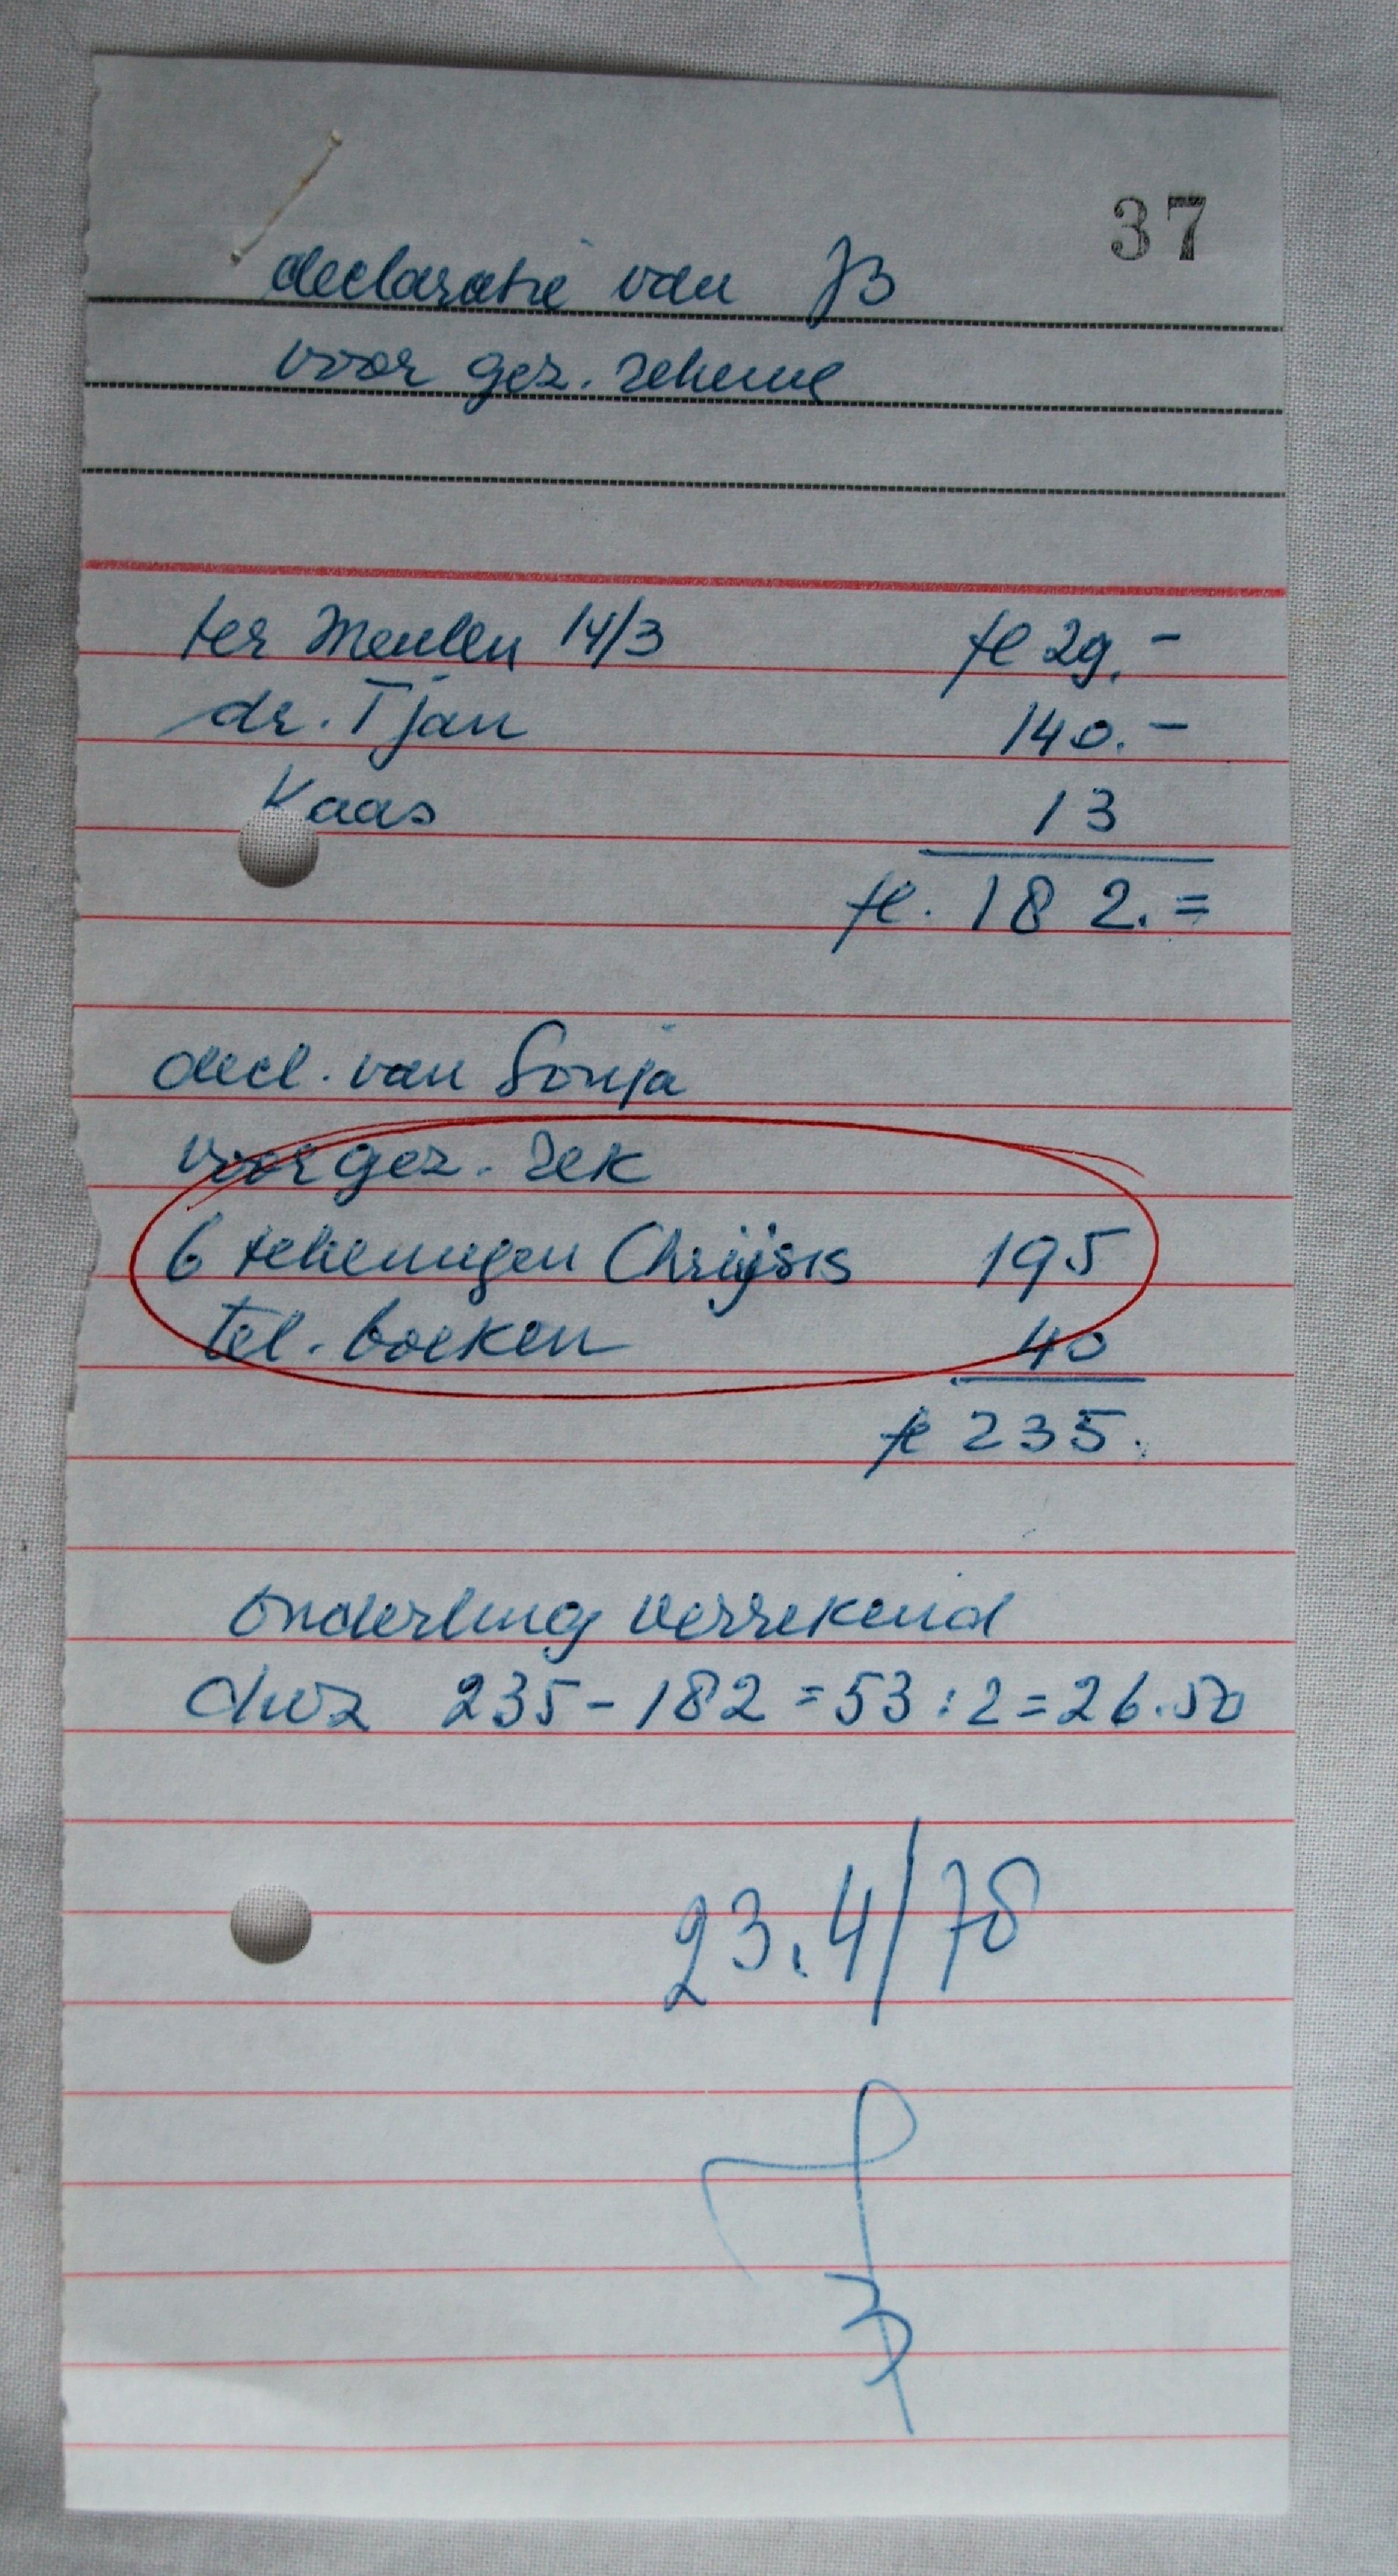 37
declaratie van JB
voor gez. rekening
ter Meulen 14/3 fl 29.-
dr. Tjan 140.-
Kaas 13
fl. 182.=
decl. van Sonja
voor gez. rek
6 tekeningen Chrijsis 195
tel. boeken 40
fl 235.
onderling verrekend
dwz 235-182=53:2=26.50
23.4/78